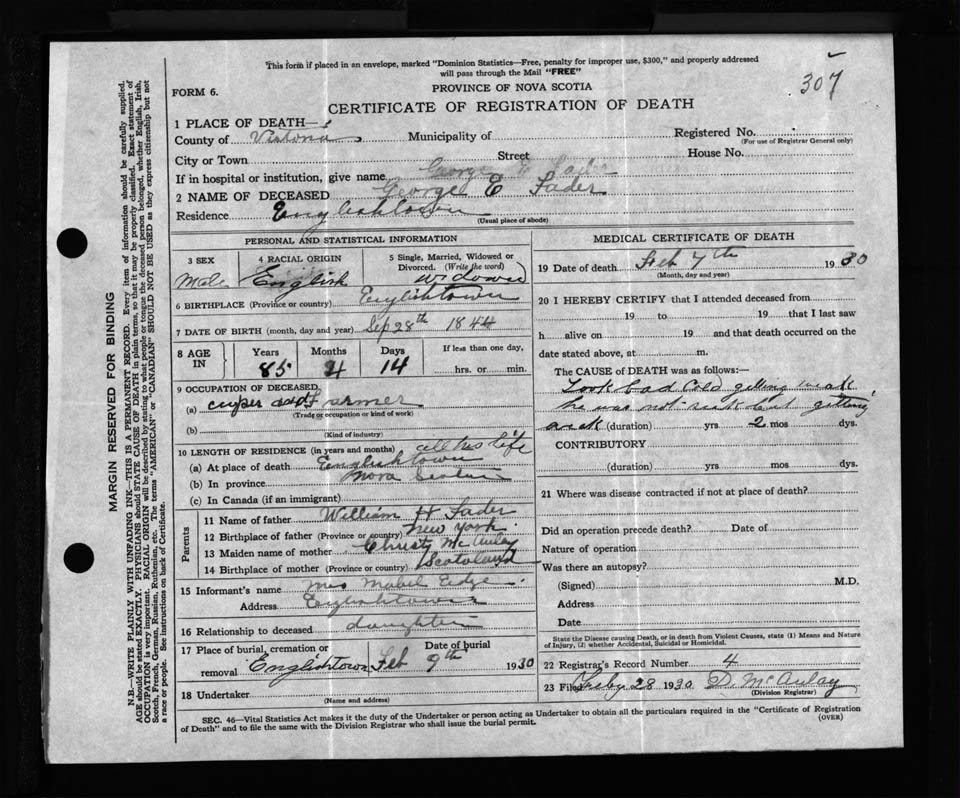 This form if placed in an envelope, marked "Dominion Statistics—Free, penalty for improper use, $300," and properly addressed
will pass through the Mail "FREE"
307
FORM 6.
PROVINCE OF NOVA SCOTIA
CERTIFICATE OF REGISTRATION OF DEATH
1 PLACE OF DEATH—
County of Victoria Municipality of Registered No.
(For use of Registrar General only)
City or Town Street House No.
If in hospital or institution, give name George E Fader
2 NAME OF DECEASED George E Fader
Residence Englishtown
(Usual place of abode)
PERSONAL AND STATISTICAL INFORMATION
3 SEX 4 RACIAL ORIGIN 5 Single, Married, Widowed or
Divorced. (Write the word)
Male English Widower
6 BIRTHPLACE (Province or country) Englishtown
7 DATE OF BIRTH (month, day and year) Sep 28th 1844
8 AGE IN Years Months Days If less than one day,
85 4 14 hrs. or min.
9 OCCUPATION OF DECEASED
(a) and Farmer
(Trade or occupation or kind of work)
(b)
(Kind of industry)
10 LENGTH OF RESIDENCE (in years and months) all his life
(a) At place of death Englishtown
(b) In province Nova Scotia
(c) In Canada (if an immigrant)
Parents
11 Name of father William H Fader
12 Birthplace of father (Province or country) New York
13 Maiden name of mother Christy McAulay
14 Birthplace of mother (Province or country) Scotoland
15 Informant's name Mrs Mabel
Address Englishtown
16 Relationship to deceased daughter
17 Place of burial, cremation or Date of burial
removal Englishtown Feb 9th 1930
18 Undertaker
(Name and address)
MEDICAL CERTIFICATE OF DEATH
19 Date of death Feb 7th 1930
(Month, day and year)
20 I HEREBY CERTIFY that I attended deceased from
19 to 19 that I last saw
h alive on 19 and that death occurred on the
date stated above, at m.
The CAUSE OF DEATH was as follows:—
Took bad Cold getting weak
he was not sick but getting
(duration) yrs 2 mos dys.
CONTRIBUTORY
(duration) yrs mos dys.
21 Where was disease contracted if not at place of death?
Did an operation precede death? Date of
Nature of operation
Was there an autopsy?
(Signed) M.D.
Address
Date
State the Disease causing Death, or in death from Violent Causes, state (1) Means and Nature
of Injury, (2) whether Accidental, Suicidal or Homicidal.
22 Registrar's Record Number 4
23 Filed Feby 28 1930 D. McAulay
(Division Registrar)
SEC. 46—Vital Statistics Act makes it the duty of the Undertaker or person acting as Undertaker to obtain all the particulars required in the "Certificate of Registration
of Death" and to file the same with the Division Registrar who shall issue the burial permit. (OVER)
MARGIN RESERVED FOR BINDING
N.B.—WRITE PLAINLY WITH UNFADING INK—THIS IS A PERMANENT RECORD. Every item of information should be carefully supplied.
AGE should be stated EXACTLY. PHYSICIANS should STATE CAUSE OF DEATH in plain terms, so that it may be properly classified. Exact statement of
OCCUPATION is very important. RACIAL ORIGIN will be described by stating to what people or tongue the deceased person belonged, whether English, Irish,
Scotch, French, German, Russian, Ruthenian, etc. The terms "AMERICAN" or "CANADIAN" SHOULD NOT BE USED as they express citizenship but not
a race or people. See instructions on back of Certificate.